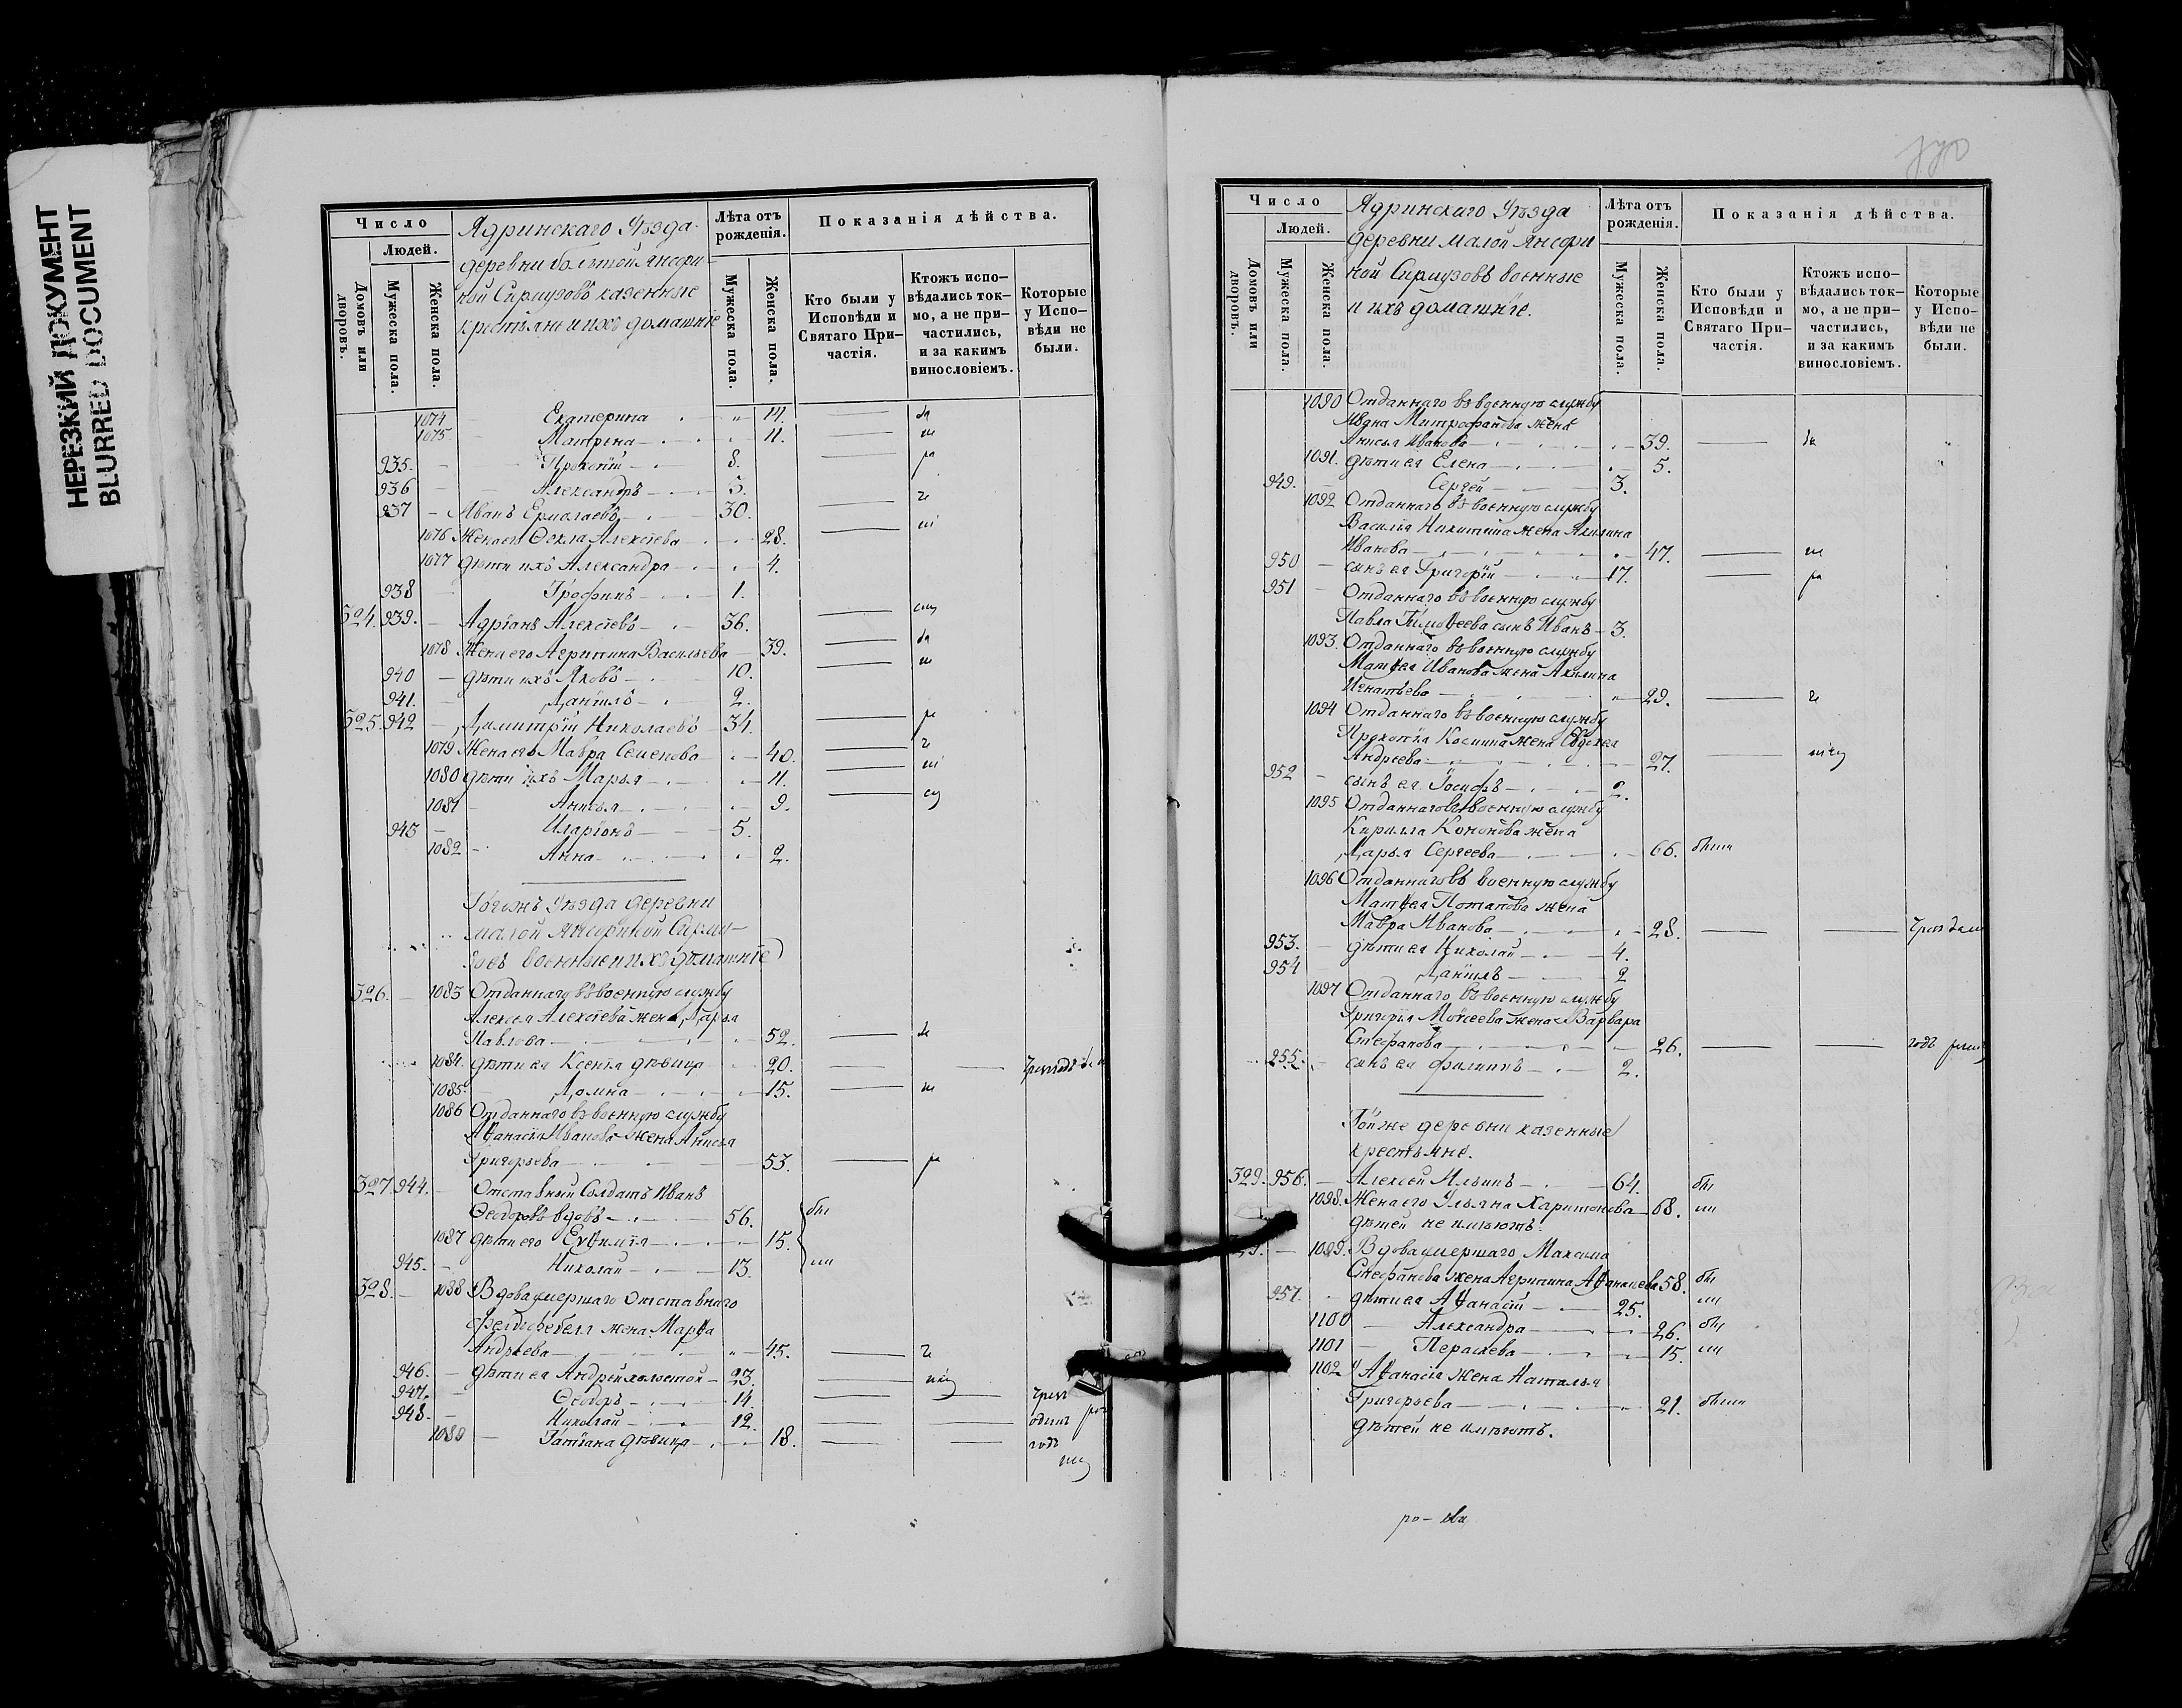 НЕРЕЗКИЙ ДОКУМЕНТ
BLURRED DOCUMENT
Число
Людей.
Домовъ или дворовъ.
Мужеска пола.
Женска пола.
Ядринскаго Уѣзда
деревни большой Янсари-
ной Сирмузовъ казенные
крестьяне и ихъ домашніе
Лѣта отъ рожденія.
Мужеска пола.
Женска пола.
Показанія дѣйства.
Кто были у Исповѣди и Святаго При-частія.
Ктожъ испо-вѣдались ток-мо, а не при-частились, и за какимъ винословіемъ.
Которые у Испо-вѣди не были.
1074 Екатерина 14.
1075. Матрена 11.
935. Прокопій 8.
936 Александръ 5.
937 Иванъ Ермолаевъ 30.
1076 Жена его Ѳекла Алексіева 28.
1077 дѣти ихъ Александра 4.
938 Трофимъ 1.
324. 939. Адріанъ Алексіевъ 36.
1078 Жена его Агрипина Васильева 39.
940 дѣти ихъ Яковъ 10.
941. Даніилъ 2.
325 942 Димитрій Николаевъ 34.
1079 Жена его Мавра Семенова 40.
1080 дѣти ихъ Марья 11.
1081 Анисья 9.
943 Иларіонъ 5.
1082 Анна 2.
Тогожъ Уѣзда деревни
малой Янсариной Сирму-
зовъ военные и ихъ домашніе
326. 1083 Отданнаго въ военную службу
Алексея Алексіева жена Дарья
Павлова 52.
1084. дѣти ея Ксенія дѣвица 20.
1085. Домна 15.
1086 Отданнаго въ военную службу
Аѳанасія Иванова жена Анисья
Григорьева 53.
327. 944. Отставный Солдатъ Иванъ
Ѳеодоровъ вдовъ 56.
1087 дѣти его Евѳимія 15.
945. Николай 13.
328. 1088 Вдова умершаго отставнаго
фельдфебеля жена Марѳа
Андреева 45.
946. дѣти ея Андрей холостой 23.
947. Ѳеодоръ 14.
948. Николай 12.
1089 Татіана дѣвица 18.
Число
Людей.
Домовъ или дворовъ.
Мужеска пола.
Женска пола.
Ядринскаго Уѣзда
деревни малой Янсари
ной Сирмузовъ военные
и ихъ домашніе.
Лѣта отъ рожденія.
Мужеска пола.
Женска пола.
Показанія дѣйства.
Кто были у Исповѣди и Святаго При-частія.
Ктожъ испо-вѣдались ток-мо, а не при-частились, и за какимъ винословіемъ.
Которые у Испо-вѣди не были.
1090 Отданнаго въ военную службу
Митрофанова жена
Анисья Иванова 39.
1091. дѣти ея Елена 5.
949. Сергей 3.
1092 Отданнаго въ военную службу
Василія Никитина жена Акилина
Иванова 47.
950 сынъ ея Григорій 17.
951 Отданнаго въ военную службу
Павла Тимоѳеева сынъ Иванъ 3.
1093. Отданнаго въ военную службу
Матѳея Иванова жена Акилина
Игнатьева 29.
1094 Отданнаго въ военную службу
Прокопія Космина жена Евдокея
Андреева 27.
952 сынъ ея Іосифъ 2.
1095 Отданнаго въ военную службу
Кирилла Кононова жена
Дарья Сергеева 66. были
1096 Отданнаго въ военную службу
Матѳея Потапова жена
Мавра Иванова 28.
953. дѣти ея Николай 4.
954 Даніилъ 2
1097 Отданнаго въ военную службу
Григорія Моѵсеева жена Варвара
Стефанова 26.
955. сынъ ея Филиппъ 2.
Той же деревни казенные
крестьяне.
329. 956. Алексей Ильинъ 64.
1098. Жена его Ульяна Харитонова 68.
дѣтей не имѣютъ.
1099. Вдова умершаго Максима
Стефанова жена Агрипина Аѳанасьева 58.
957. дѣти ея Аѳанасій 25.
1100 Александра 26.
1101 Параскева 15.
1102 Аѳанасія жена Наталья
Григорьева 21. были
дѣтей не имѣютъ.